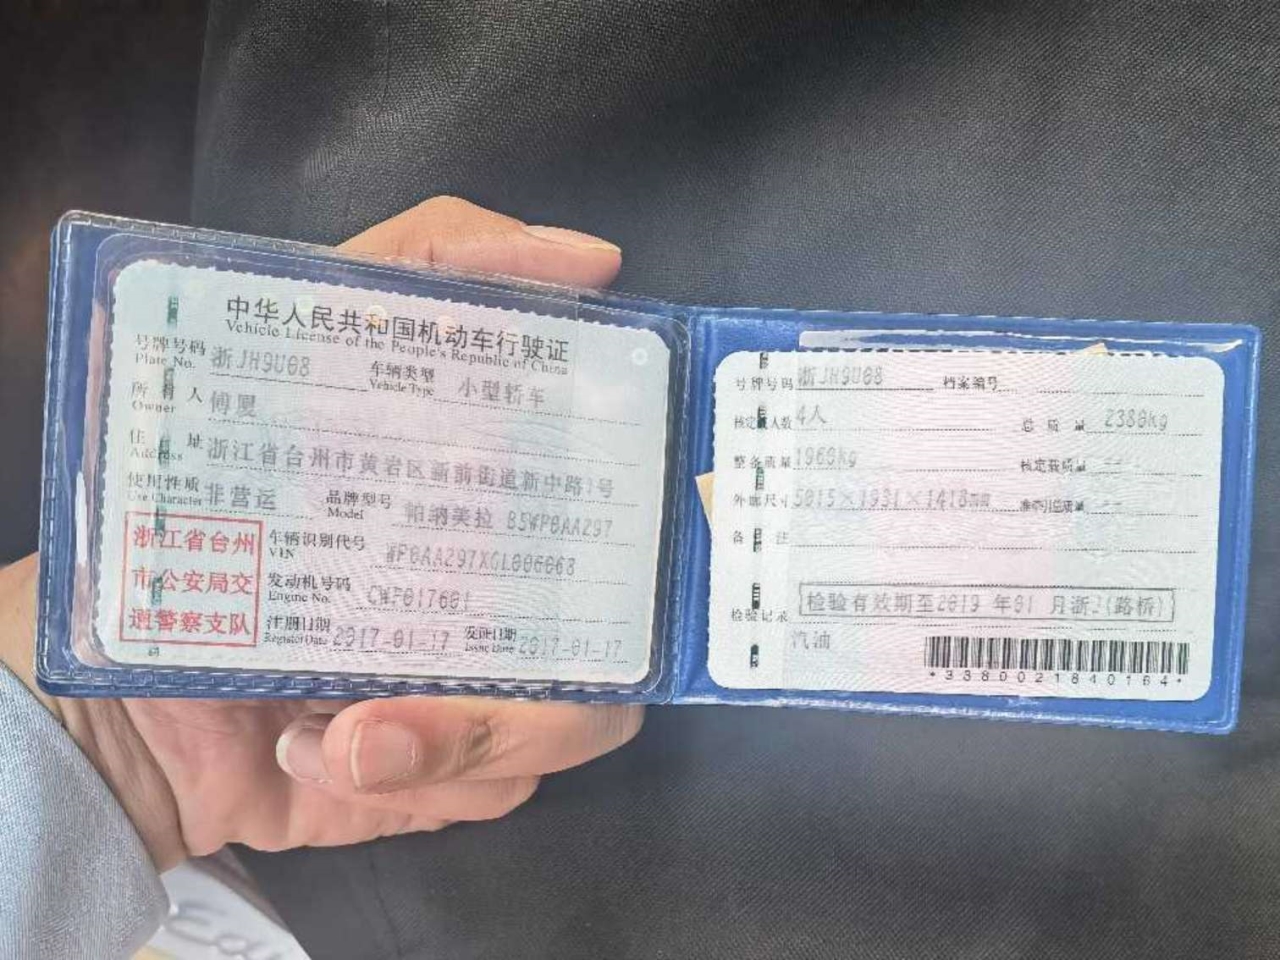 中华人民共和国机动车行驶证
Vehicle License of the People's Republic of China
号牌号码 浙JH9U08 车辆类型 小型轿车
Plate No. Vehicle Type
所有人 傅厦
Owner
住址 浙江省台州市黄岩区新前街道新中路1号
Address
使用性质 非营运 品牌型号 帕纳美拉
Use Character Model
浙江省台州
市公安局交
通警察支队
车辆识别代号
VIN
发动机号码 CWF017601
Engine No.
注册日期 2017-01-17 发证日期 2017-01-17
Register Date Issue Date
号牌号码 浙JH9U08 档案编号
核定载人数 4人 总质量 2380kg
整备质量 1960kg 核定载质量 --
外廓尺寸 5015×1931×1418 准牵引总质量 --
备注
检验记录 检验有效期至2019年01月浙J(路桥)
汽油
*3380021840164*